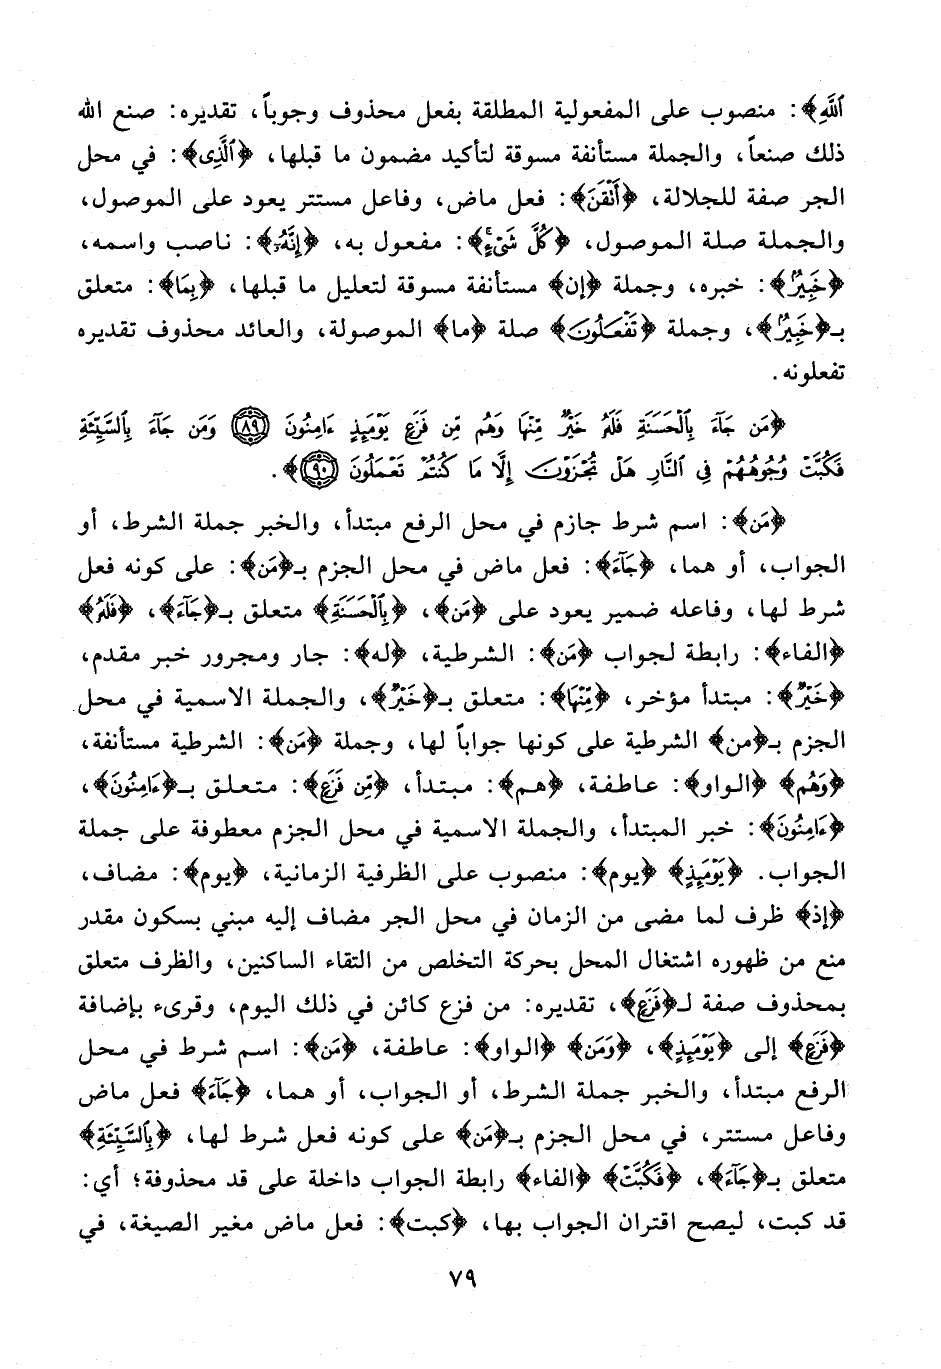 ٱللَّهِ﴾: منصوب على المفعولية المطلقة بفعل محذوف وجوباً، تقديره: صنع الله
ذلك صنعاً، والجملة مستأنفة مسوقة لتأكيد مضمون ما قبلها، ﴿ٱلَّذِىٓ﴾: في محل
الجر صفة للجلالة، ﴿أَتْقَنَ﴾: فعل ماض، وفاعل مستتر يعود على الموصول،
والجملة صلة الموصول، ﴿كُلَّ شَىْءٍ﴾: مفعول به، ﴿إِنَّهُۥ﴾: ناصب واسمه،
﴿خَبِيرٌۢ﴾: خبره، وجملة ﴿إن﴾ مستأنفة مسوقة لتعليل ما قبلها، ﴿بِمَا﴾: متعلق
بـ﴿خَبِيرٌۢ﴾، وجملة ﴿تَفْعَلُونَ﴾ صلة ﴿ما﴾ الموصولة، والعائد محذوف تقديره
تفعلونه.
﴿مَن جَآءَ بِٱلْحَسَنَةِ فَلَهُۥ خَيْرٌ مِّنْهَا وَهُم مِّن فَزَعٍ يَوْمَئِذٍ ءَامِنُونَ ٨٩ وَمَن جَآءَ بِٱلسَّيِّئَةِ
فَكُبَّتْ وُجُوهُهُمْ فِى ٱلنَّارِ هَلْ تُجْزَوْنَ إِلَّا مَا كُنتُمْ تَعْمَلُونَ ٩٠﴾.
﴿مَن﴾: اسم شرط جازم في محل الرفع مبتدأ، والخبر جملة الشرط، أو
الجواب، أو هما، ﴿جَآءَ﴾: فعل ماض في محل الجزم بـ﴿مَن﴾: على كونه فعل
شرط لها، وفاعله ضمير يعود على ﴿مَن﴾، ﴿بِٱلْحَسَنَةِ﴾ متعلق بـ﴿جَآءَ﴾، ﴿فَلَهُۥ﴾
﴿الفاء﴾: رابطة لجواب ﴿مَن﴾: الشرطية، ﴿له﴾: جار ومجرور خبر مقدم،
﴿خَيْرٌ﴾: مبتدأ مؤخر، ﴿مِّنْهَا﴾: متعلق بـ﴿خَيْرٌ﴾، والجملة الاسمية في محل
الجزم بـ﴿من﴾ الشرطية على كونها جواباً لها، وجملة ﴿مَن﴾: الشرطية مستأنفة،
﴿وَهُم﴾ ﴿الواو﴾: عاطفة، ﴿هم﴾: مبتدأ، ﴿مِّن فَزَعٍ﴾: متعلق بـ﴿ءَامِنُونَ﴾،
﴿ءَامِنُونَ﴾: خبر المبتدأ، والجملة الاسمية في محل الجزم معطوفة على جملة
الجواب. ﴿يَوْمَئِذٍ﴾ ﴿يوم﴾: منصوب على الظرفية الزمانية، ﴿يوم﴾: مضاف،
﴿إذ﴾ ظرف لما مضى من الزمان في محل الجر مضاف إليه مبني بسكون مقدر
منع من ظهوره اشتغال المحل بحركة التخلص من التقاء الساكنين، والظرف متعلق
بمحذوف صفة لـ﴿فَزَعٍ﴾، تقديره: من فزع كائن في ذلك اليوم، وقرىء بإضافة
﴿فَزَعٍ﴾ إلى ﴿يَوْمَئِذٍ﴾، ﴿وَمَن﴾ ﴿الواو﴾: عاطفة، ﴿مَن﴾: اسم شرط في محل
الرفع مبتدأ، والخبر جملة الشرط، أو الجواب، أو هما، ﴿جَآءَ﴾ فعل ماض
وفاعل مستتر، في محل الجزم بـ﴿مَن﴾ على كونه فعل شرط لها، ﴿بِٱلسَّيِّئَةِ﴾
متعلق بـ﴿جَآءَ﴾، ﴿فَكُبَّتْ﴾ ﴿الفاء﴾ رابطة الجواب داخلة على قد محذوفة؛ أي:
قد كبت، ليصح اقتران الجواب بها، ﴿كبت﴾: فعل ماض مغير الصيغة، في
٧٩